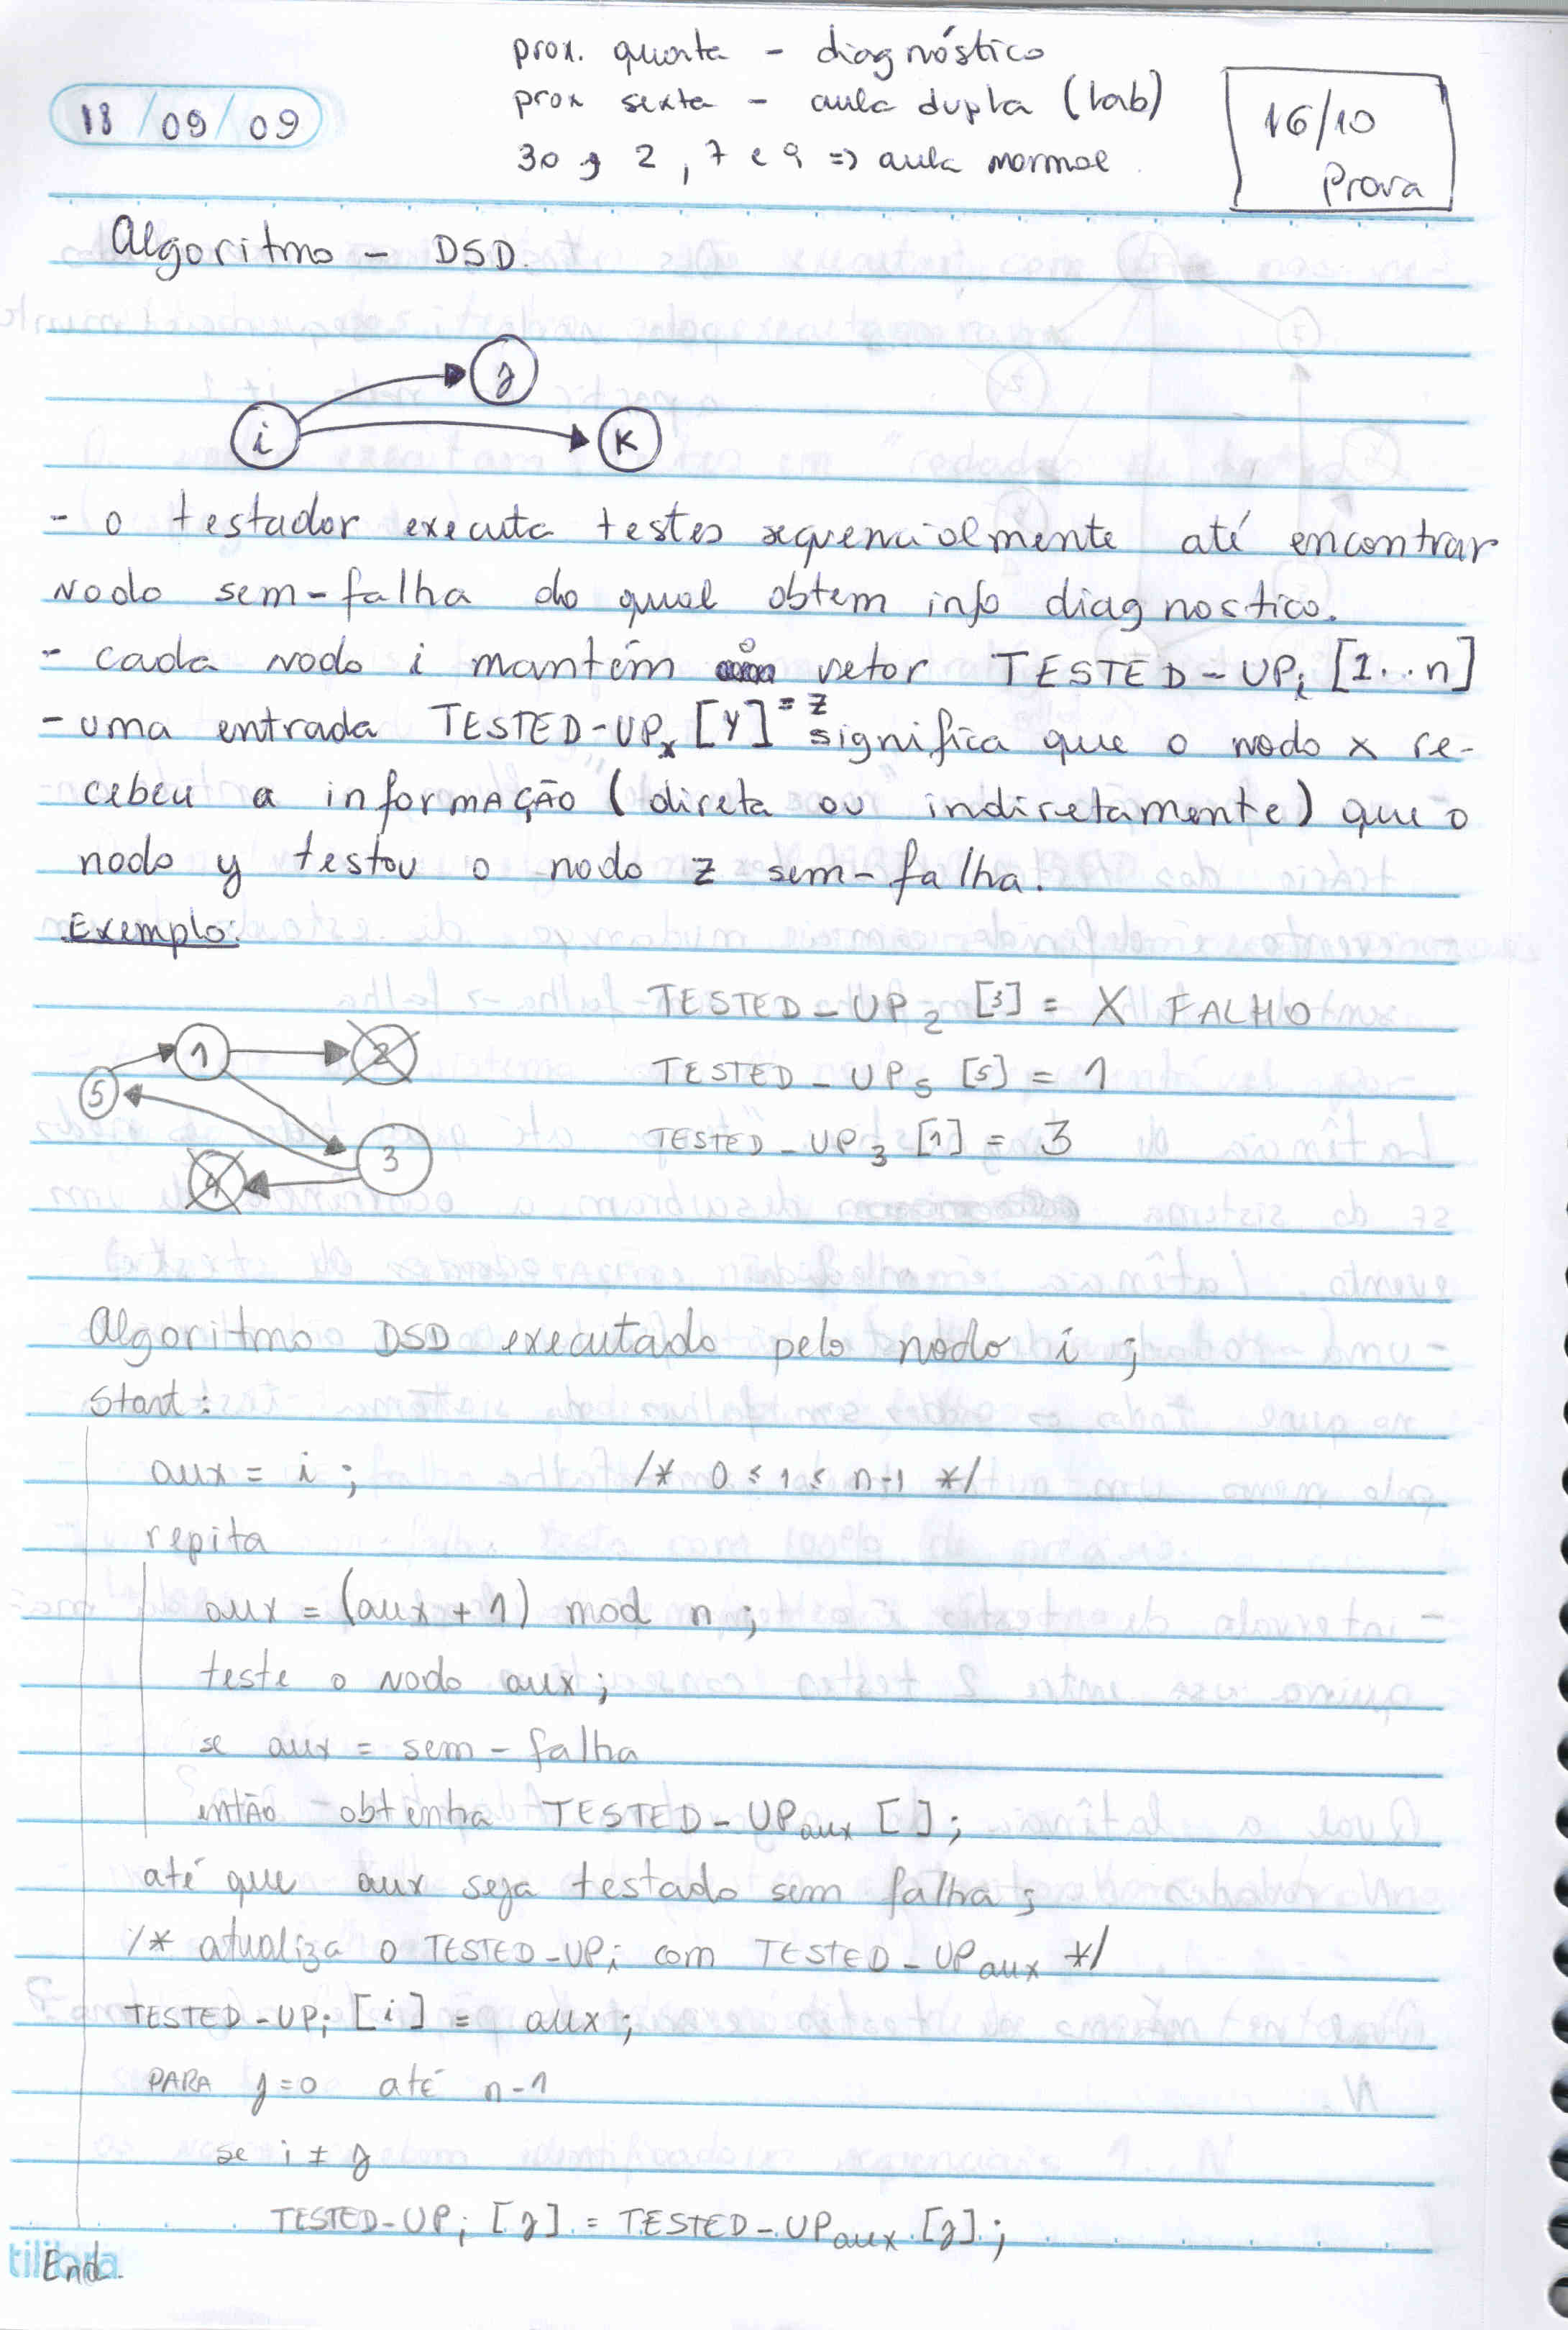 prox. quarta - diagnóstico
prox sexta - aula dupla (lab)
30 e 2, 7 e 9 => aula normal.
18/09/09
16/10
Prova
Algoritmo - DSD.
j
i
K
- o testador executa testes sequencialmente até encontrar
nodo sem-falha do qual obtem info diagnostico.
- cada nodo i mantém o vetor TESTED-UPi [1..n]
- uma entrada TESTED-UPx [y] = z significa que o nodo x re-
cebeu a informação (direta ou indiretamente) que o
nodo y testou o nodo z sem-falha.
Exemplo:
TESTED-UP2 [3] = X FALHO
TESTED-UP5 [5] = 1
TESTED-UP3 [1] = 3
1
2
5
3
4
Algoritmo DSD executado pelo nodo i;
Start:
aux = i; /* 0 ≤ 1 ≤ n-1 */
repita
aux = (aux + 1) mod n;
teste o nodo aux;
se aux = sem-falha
então obtenha TESTED-UPaux [ ];
até que aux seja testado sem falha;
/* atualiza o TESTED-UPi com TESTED-UPaux */
TESTED-UPi [i] = aux;
PARA j=0 até n-1
se i ≠ j
TESTED-UPi [j] = TESTED-UPaux [j];
End.
tilibra